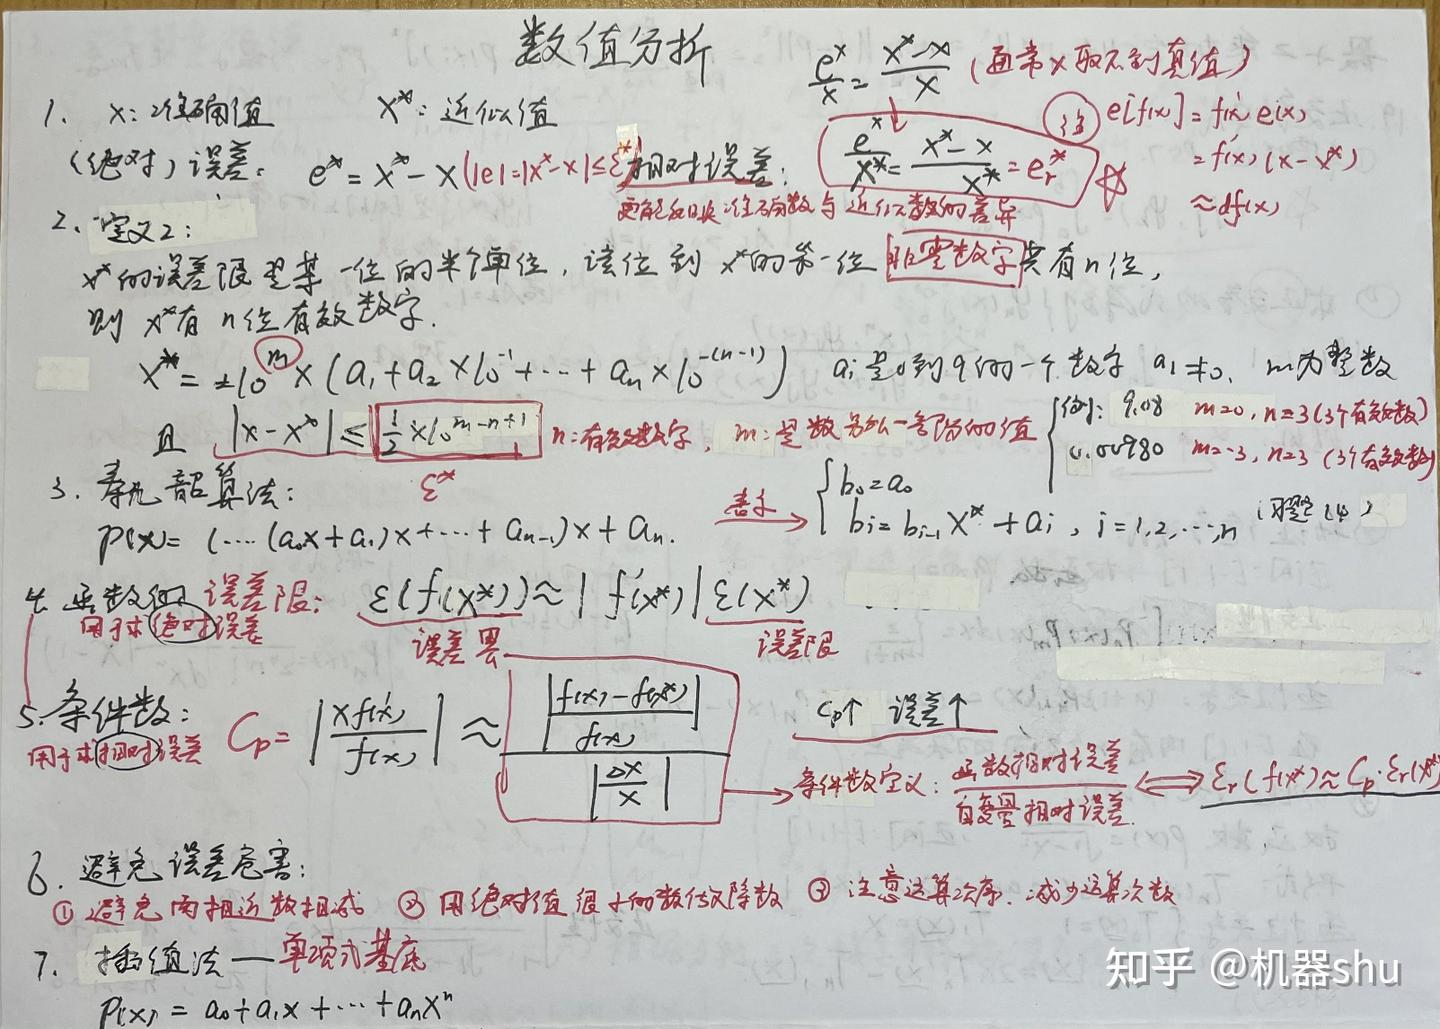 数值分析
1. x:准确值 x*:近似值
e*/x = (x*-x)/x (通常x取不到真值)
(绝对)误差: e* = x* - x (|e|=|x*-x|≤ε*) 相对误差: e*/x* = (x*-x)/x* = e_r* ☆
更能反映准确数与近似数的差异
e[f(x)] = f'(x) e(x)
= f'(x) (x-x*)
≈ df(x)
2. 定义2:
x*的误差限是某一位的半个单位, 该位到x*的第一位非零数字共有n位,
则 x*有n位有效数字.
x* = ±10^m × (a₁+a₂×10^-1+…+aₙ×10^-(n-1)) aᵢ是0到9的一个数字 a₁≠0, m为整数
且 |x-x*| ≤ 1/2 × 10^(m-n+1) n:有效数字, m:是数 的值
ε*
例: 9.08 m=0, n=3 (3个有效数)
0.00980 m=-3, n=3 (3个有效数)
3. 秦九韶算法:
P(x) = (…(a₀x+a₁)x+…+aₙ₋₁)x+aₙ.
表示 → { b₀=a₀
bᵢ=bᵢ₋₁x*+aᵢ, i=1,2,…,n (习题14)
4. 函数的误差限: ε(f(x*)) ≈ |f'(x*)| ε(x*)
用于求绝对误差 误差界 误差限
5. 条件数: Cp = |x f'(x) / f(x)| ≈ |(f(x)-f(x*))/f(x)| / |Δx/x| Cp↑ 误差↑
用于求相对误差
→ 条件数定义: 函数相对误差/自变量相对误差 ⟺ εr(f(x*)) ≈ Cp·εr(x*)
6. 避免误差危害:
① 避免两相近数相减 ② 用绝对值很小的数做除数 ③ 注意运算次序, 减少运算次数
7. 插值法——单项式基底
P(x) = a₀+a₁x+…+aₙxⁿ
知乎 @机器shu